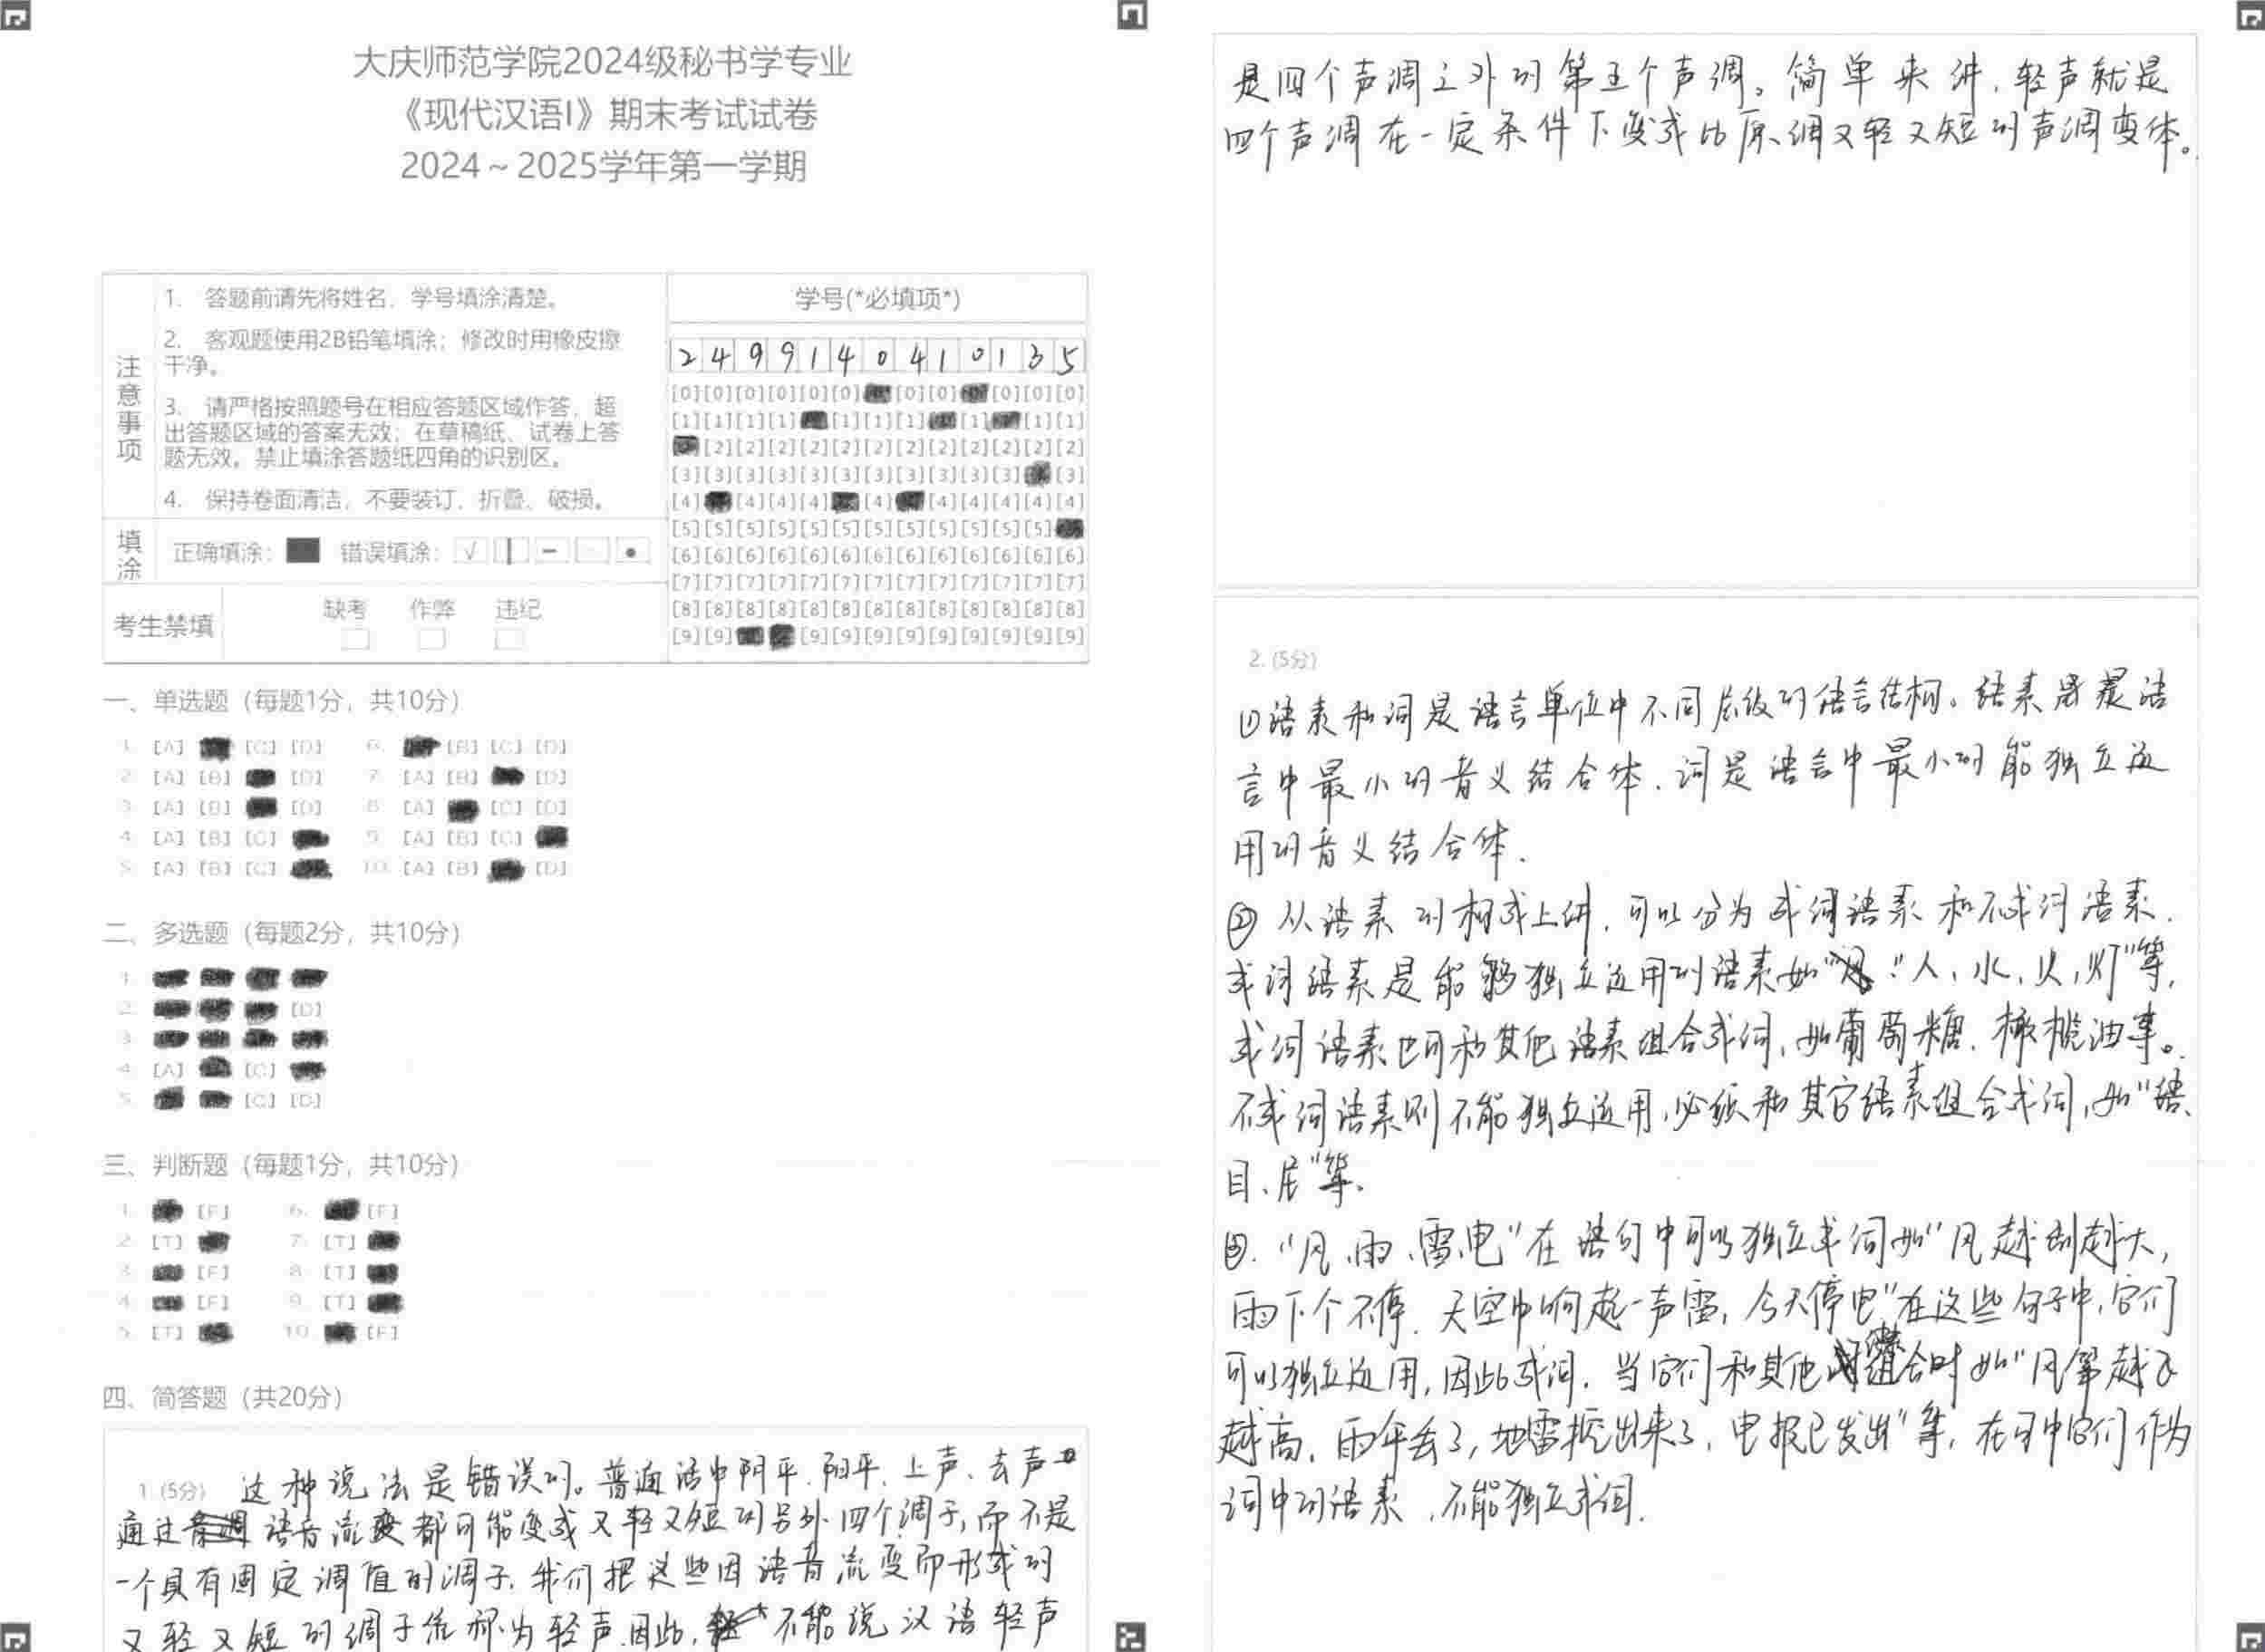 大庆师范学院2024级秘书学专业
《现代汉语Ⅰ》期末考试试卷
2024～2025学年第一学期
注意事项
1. 答题前请先将姓名、学号填涂清楚。
2. 客观题使用2B铅笔填涂；修改时用橡皮擦
干净。
3. 请严格按照题号在相应答题区域作答，超
出答题区域的答案无效；在草稿纸、试卷上答
题无效。禁止填涂答题纸四角的识别区。
4. 保持卷面清洁，不要装订、折叠、破损。
填涂
正确填涂： 错误填涂：
考生禁填 缺考 作弊 违纪
学号(*必填项*)
2499140410135
[0][0][0][0][0][0][0][0][0][0][0]
[1][1][1][1][1][1][1][1][1][1]
[2][2][2][2][2][2][2][2][2][2][2][2]
[3][3][3][3][3][3][3][3][3][3][3][3]
[4][4][4][4][4][4][4][4][4][4]
[5][5][5][5][5][5][5][5][5][5][5][5]
[6][6][6][6][6][6][6][6][6][6][6][6][6]
[7][7][7][7][7][7][7][7][7][7][7][7][7]
[8][8][8][8][8][8][8][8][8][8][8][8][8]
[9][9][9][9][9][9][9][9][9][9][9]
一、单选题（每题1分，共10分）
1. [A] [C] [D] 6. [B] [C] [D]
2. [A] [B] [D] 7. [A] [B] [D]
3. [A] [B] [D] 8. [A] [C] [D]
4. [A] [B] [C] 9. [A] [B] [C]
5. [A] [B] [C] 10. [A] [B] [D]
二、多选题（每题2分，共10分）
1.
2. [D]
3.
4. [A] [C]
5. [C] [D]
三、判断题（每题1分，共10分）
1. [F] 6. [F]
2. [T] 7. [T]
3. [F] 8. [T]
4. [F] 9. [T]
5. [T] 10. [F]
四、简答题（共20分）
1. (5分) 这种说法是错误的。普通话中阴平、阳平、上声、去声
通过语音流变都可能变成又轻又短的另外四个调子，而不是
一个具有固定调值的调子。我们把这些因语音流变而形成的
又轻又短的调子统称为轻声。因此，不能说汉语轻声
是四个声调之外的第五个声调。简单来讲，轻声就是
四个声调在一定条件下变成比原调又轻又短的声调变体。
2. (5分)
①语素和词是语言单位中不同层级的语言结构。语素是语
言中最小的音义结合体，词是语言中最小的能独立运
用的音义结合体.
② 从语素的构成上讲，可以分为成词语素和不成词语素.
成词语素是能够独立运用的语素如“人，水，火，灯”等，
成词语素也可和其他语素组合成词，如葡萄糖、橄榄油等。
不成词语素则不能独立运用，必须和其它语素组合成词，如“语、
目、居”等。
③.“风、雨、雷、电”在语句中可以独立成词如“风越刮越大，
雨下个不停、天空中响起一声雷，今天停电”在这些句子中，它们
可以独立运用，因此成词. 当它们和其他组合时如“风筝越飞
越高，雨伞丢了，地雷挖出来了，电报已发出”等，在句中它们作为
词中的语素，不能独立成词.